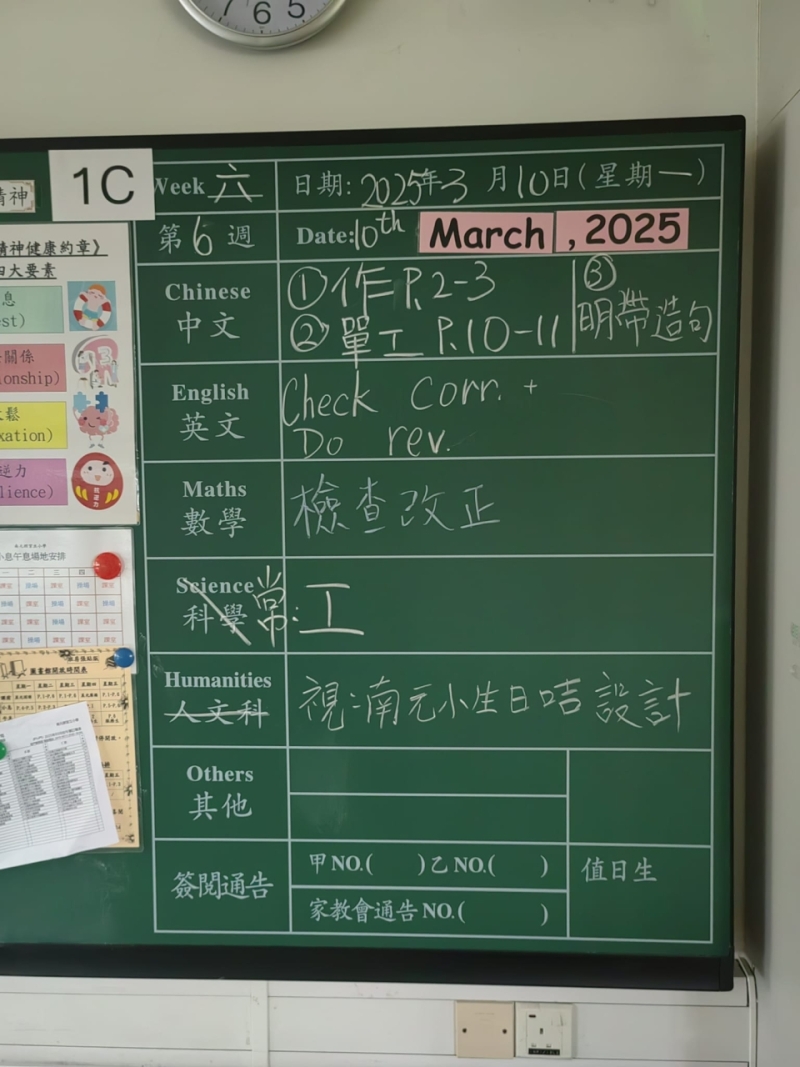 7 6 5
1C
精神
Week 六
日期: 2025年3月10日(星期一)
第6週
Date: 10th March , 2025
Chinese
中文
① 作 P.2-3
② 單工 P.10-11
③
明帶造句
English
英文
Check corr. +
Do rev.
Maths
數學
檢查改正
Science
科學
常: 工
Humanities
人文科
視:南元小生日咭設計
Others
其他
簽閱通告
甲NO.( )乙NO.( )
家教會通告NO.( )
值日生
精神健康約章》
四大要素
息
est)
關係
ionship)
鬆
xation)
逆力
lience)
小息午息場地安排
圖書館開放時間表